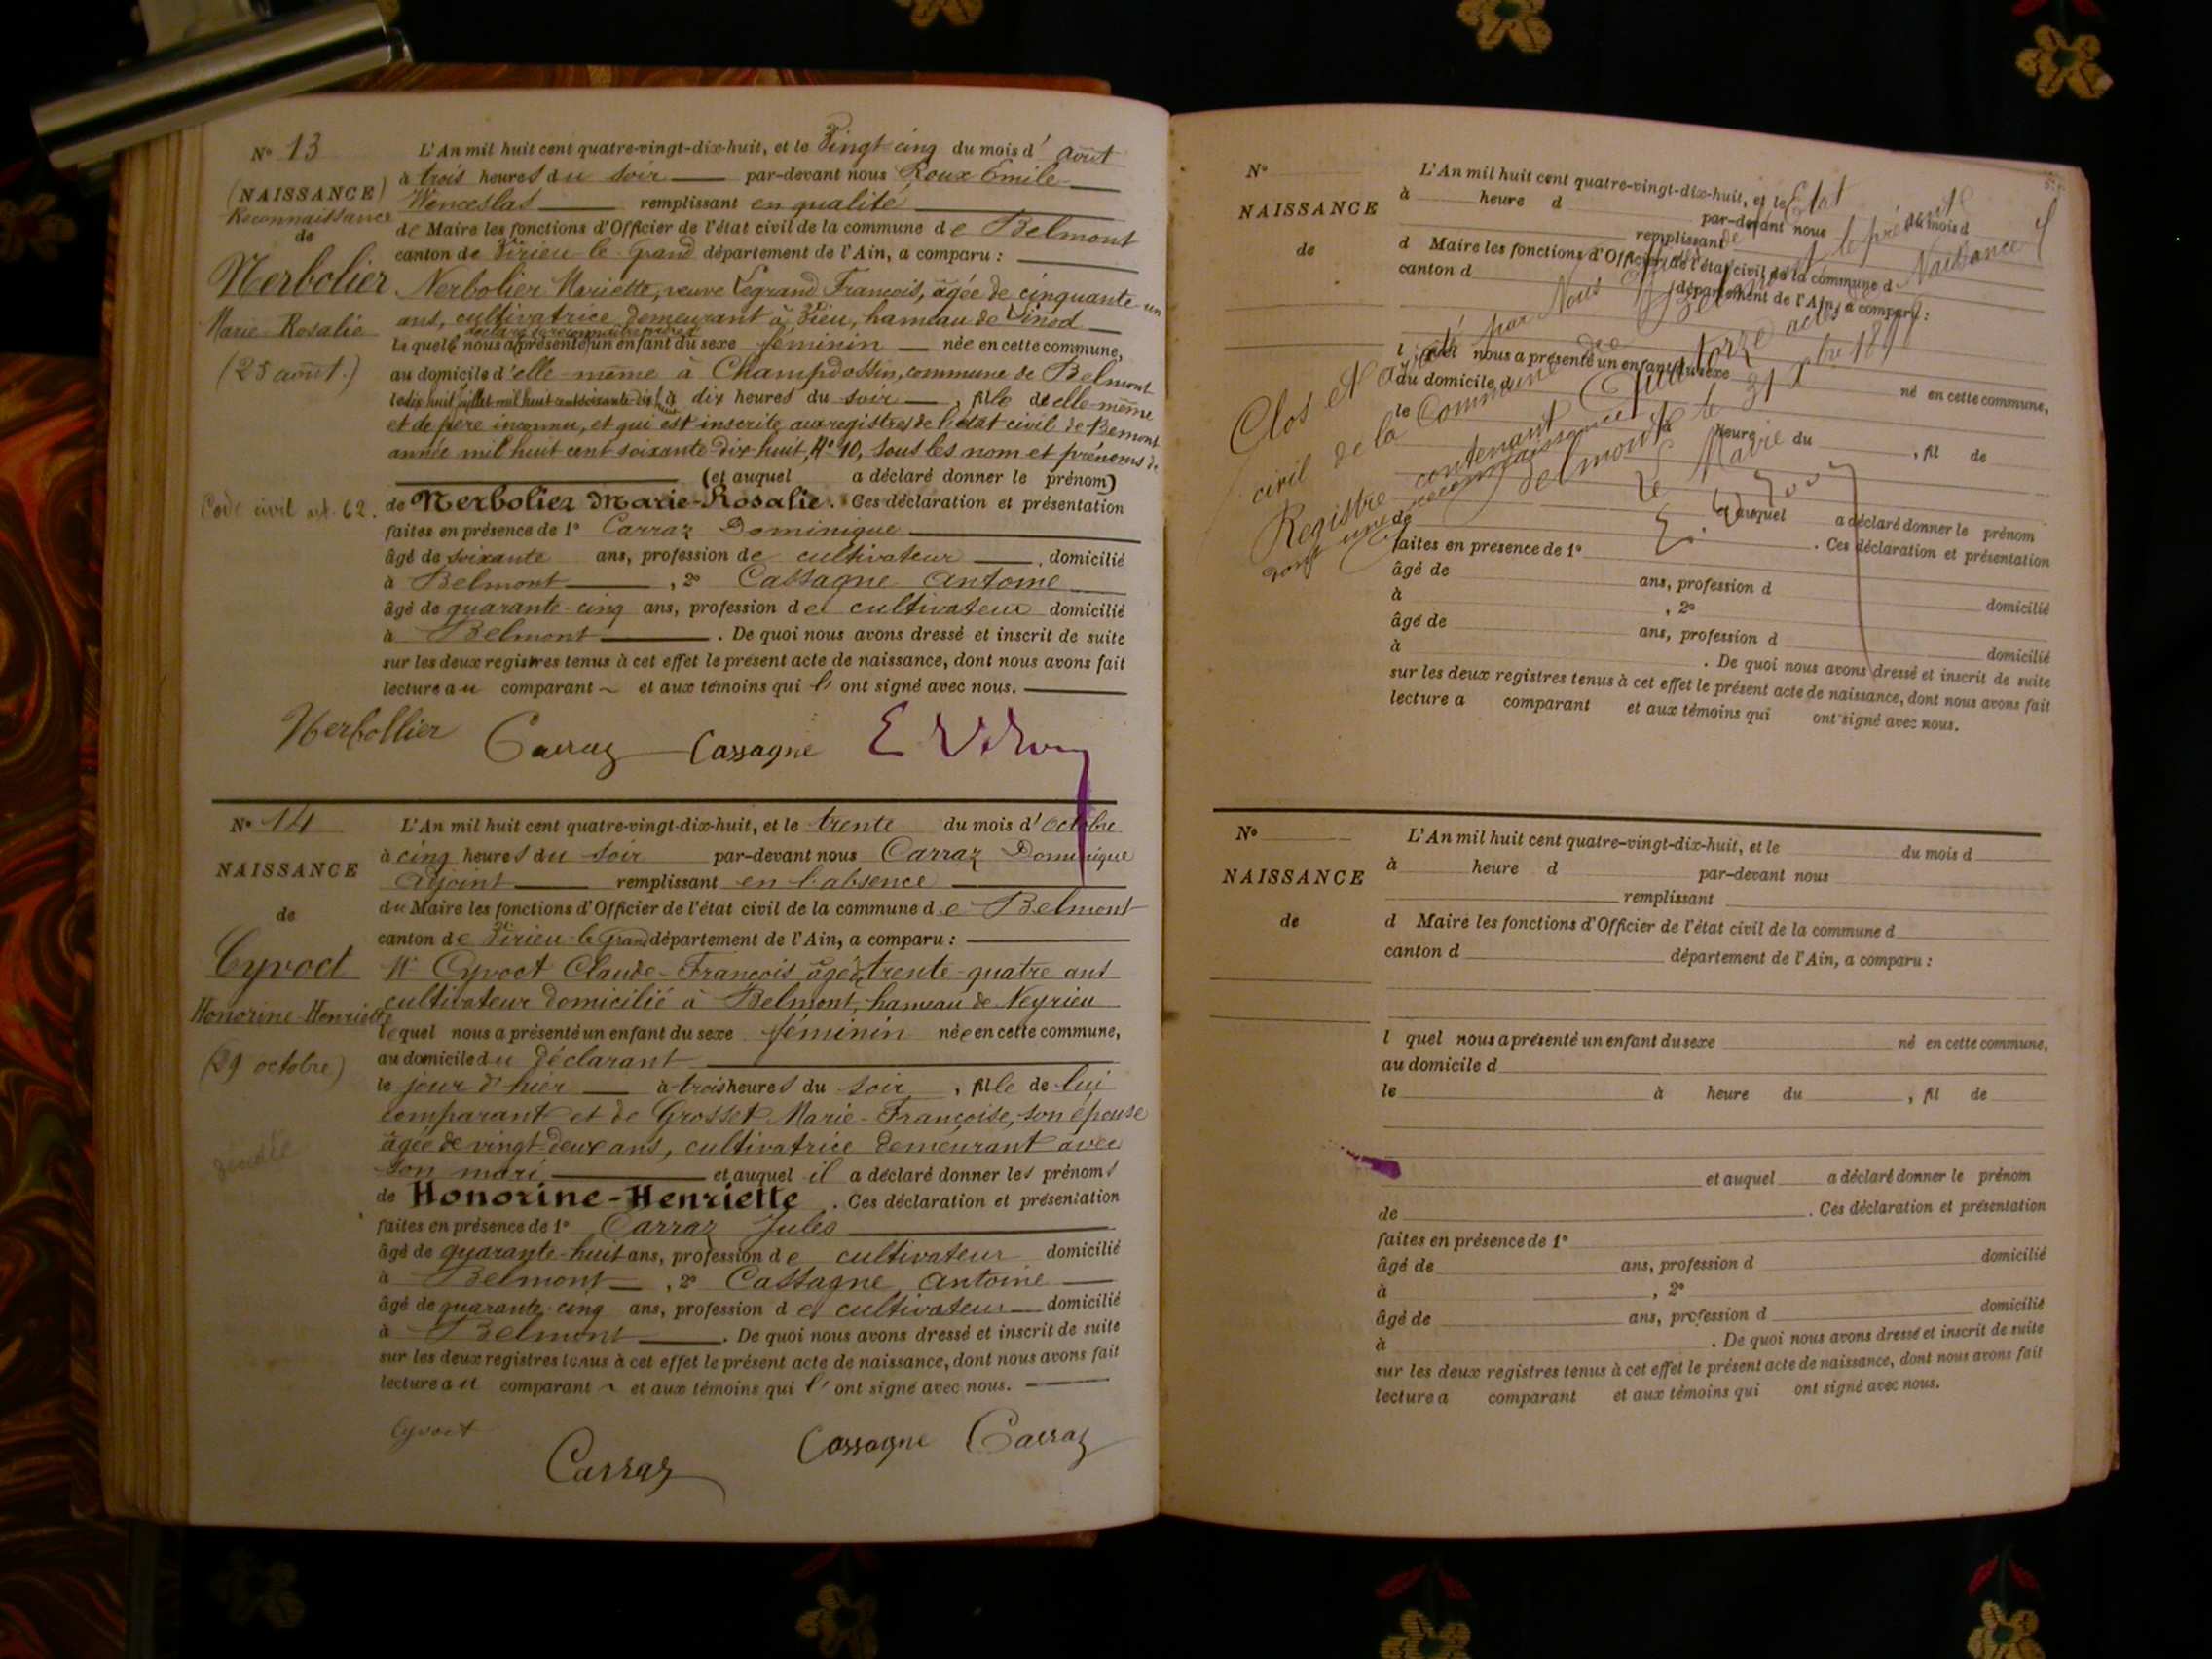 N° 13
(NAISSANCE)
Reconnaissance
de
Nerbolier
Marie-Rosalie
(25 août.)
Code civil art. 62.
L'An mil huit cent quatre-vingt-dix-huit, et le Vingt-cinq du mois d'août
à trois heures du soir par-devant nous Roux Emile
Wenceslas remplissant en qualité
de Maire les fonctions d'Officier de l'état civil de la commune de Belmont
canton de Virieu-le-Grand département de l'Ain, a comparu :
Nerbolier Mariette, veuve Legrand François, âgée de cinquante un
ans, cultivatrice demeurant à Vieu, hameau de Linod
la quelle nous a présenté un enfant du sexe féminin née en cette commune,
au domicile d'elle-même à Champdossin, commune de Belmont
le dix huit juillet mil huit cent soixante dix huit à dix heures du soir, fille de elle-même
et de père inconnu, et qui est inscrite aux registres de l'état civil de Bemont
année mil huit cent soixante-dix-huit, N° 10, sous les nom et prénoms de
(et auquel a déclaré donner le prénom)
de Nerbolier Marie-Rosalie. Ces déclaration et présentation
faites en présence de 1° Carraz Dominique
âgé de soixante ans, profession de cultivateur, domicilié
à Belmont, 2° Cassagne Antoine
âgé de quarante-cinq ans, profession de cultivateur domicilié
à Belmont. De quoi nous avons dressé et inscrit de suite
sur les deux registres tenus à cet effet le présent acte de naissance, dont nous avons fait
lecture au comparant et aux témoins qui l'ont signé avec nous.
Nerbollier Carraz Cassagne
N° 14
NAISSANCE
de
Cyvoct
Honorine-Henriette
(29 octobre)
L'An mil huit cent quatre-vingt-dix-huit, et le trente du mois d'octobre
à cinq heures du soir par-devant nous Carraz Dominique
adjoint remplissant en l'absence
du Maire les fonctions d'Officier de l'état civil de la commune de Belmont
canton de Virieu-le-Grand département de l'Ain, a comparu :
Mr Cyvoct Claude-François âgé de trente-quatre ans
cultivateur domicilié à Belmont, hameau de Neyrieu
lequel nous a présenté un enfant du sexe féminin née en cette commune,
au domicile du déclarant
le jour d'hier à trois heures du soir, fille de lui
comparant et de Grosset Marie-Françoise, son épouse
âgée de vingt-deux ans, cultivatrice demeurant avec
son mari et auquel il a déclaré donner les prénoms
de Honorine-Henriette. Ces déclaration et présentation
faites en présence de 1° Carraz Jules
âgé de quarante-huit ans, profession de cultivateur domicilié
à Belmont, 2° Cassagne Antoine
âgé de quarante-cinq ans, profession de cultivateur domicilié
à Belmont. De quoi nous avons dressé et inscrit de suite
sur les deux registres tenus à cet effet le présent acte de naissance, dont nous avons fait
lecture au comparant et aux témoins qui l'ont signé avec nous.
Cyvoct Carraz Cassagne Carraz
N°
NAISSANCE
de
L'An mil huit cent quatre-vingt-dix-huit, et le du mois d
à heure d par-devant nous
remplissant
d Maire les fonctions d'Officier de l'état civil de la commune d
canton d département de l'Ain, a comparu :
l quel nous a présenté un enfant du sexe né en cette commune,
au domicile d
le à heure du , fil de
et auquel a déclaré donner le prénom
de . Ces déclaration et présentation
faites en présence de 1°
âgé de ans, profession d domicilié
à , 2°
âgé de ans, profession d domicilié
à . De quoi nous avons dressé et inscrit de suite
sur les deux registres tenus à cet effet le présent acte de naissance, dont nous avons fait
lecture a comparant et aux témoins qui ont signé avec nous.
Clos et par Nous Etat
civil de la Commune de Belmont le présent
Registre de Naissance
contenant Quatorze actes
dont une reconnaissance
Belmont le 31 Xbre 1898
Le Maire
N°
NAISSANCE
de
L'An mil huit cent quatre-vingt-dix-huit, et le du mois d
à heure d par-devant nous
remplissant
d Maire les fonctions d'Officier de l'état civil de la commune d
canton d département de l'Ain, a comparu :
l quel nous a présenté un enfant du sexe né en cette commune,
au domicile d
le à heure du , fil de
et auquel a déclaré donner le prénom
de . Ces déclaration et présentation
faites en présence de 1°
âgé de ans, profession d domicilié
à , 2°
âgé de ans, profession d domicilié
à . De quoi nous avons dressé et inscrit de suite
sur les deux registres tenus à cet effet le présent acte de naissance, dont nous avons fait
lecture a comparant et aux témoins qui ont signé avec nous.